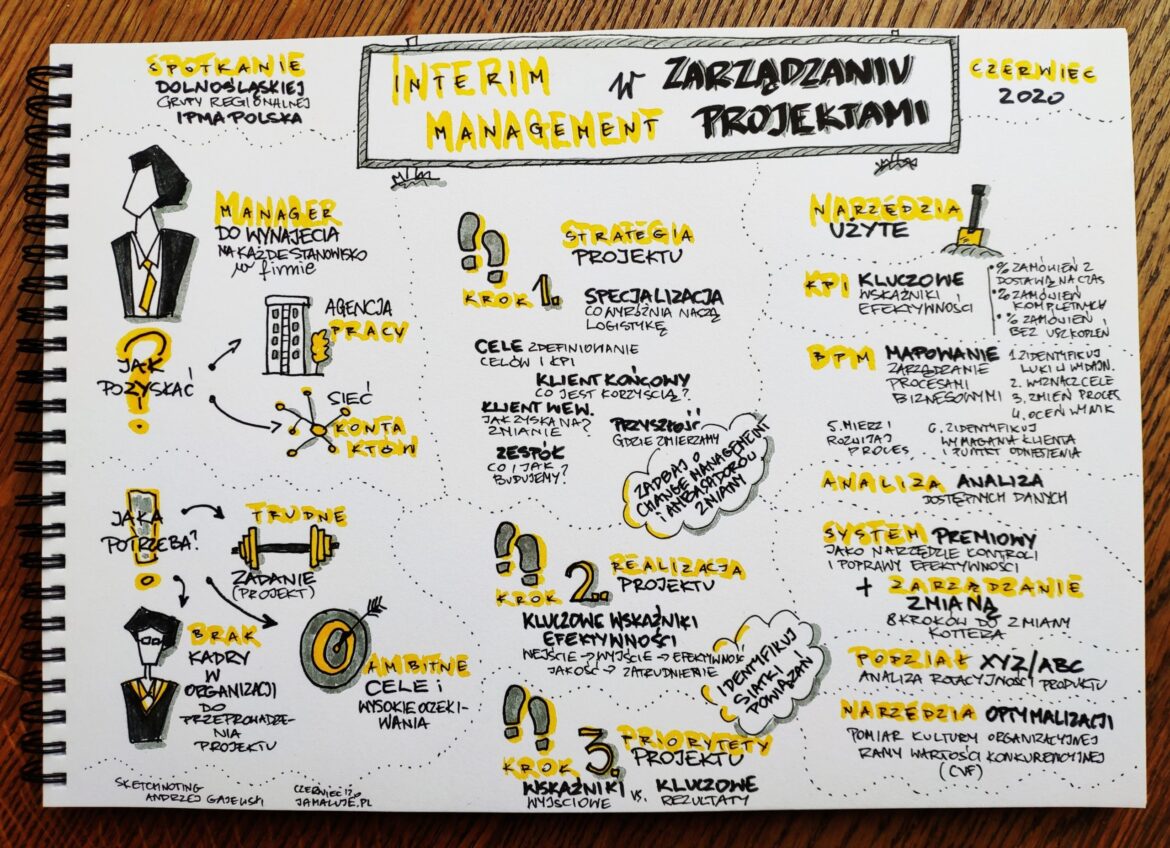 SPOTKANIE
DOLNOŚLĄSKIEJ
GRUPY REGIONALNEJ
IPMA POLSKA
INTERIM
MANAGEMENT
W ZARZĄDZANIU
PROJEKTAMI
CZERWIEC
2020
MANAGER
DO WYNAJĘCIA
NA KAŻDE STANOWISKO
w firmie
JAK
POZYSKAĆ
?
AGENCJA
PRACY
SIEĆ
KONTA
KTÓW
JAKA
POTRZEBA?
!
TRUDNE
ZADANIE
(PROJEKT)
BRAK
KADRY
W
ORGANIZACJI
DO
PRZEPROWADZE-
NIA
PROJEKTU
AMBITNE
CELE I
WYSOKIE OCZEKI-
WANIA
SKETCHNOTING
ANDRZEJ GAJEWSKI
JAMALUJE.PL
KROK 1.
STRATEGIA
PROJEKTU
SPECJALIZACJA
CO WYRÓŻNIA NASZĄ
LOGISTYKĘ
CELE ZDEFINIOWANIE
CELÓW I KPI
KLIENT KOŃCOWY
CO JEST KORZYŚCIĄ?
KLIENT WEW.
JAK ZYSKA NA?
ZMIANIE
PRZYSZŁOŚĆ
GDZIE ZMIERZAMY
ZESPÓŁ
CO I JAK?
BUDUJEMY?
ZADBAJ O
CHANGE MANAGEMENT
I AMBASADORÓW
ZMIANY
KROK 2.
REALIZACJA
PROJEKTU
KLUCZOWE WSKAŹNIKI
EFEKTYWNOŚCI
WEJŚCIE → WYJŚCIE → EFEKTYWNOŚĆ
JAKOŚĆ → ZATRUDNIENIE
IDENTYFIKUJ
SIATKI
POWIĄZAŃ
KROK 3.
PRIORYTETY
PROJEKTU
WSKAŹNIKI VS. KLUCZOWE
WYJŚCIOWE REZULTATY
NARZĘDZIA
UŻYTE
KPI KLUCZOWE
WSKAŹNIKI
EFEKTYWNOŚCI
• % ZAMÓWIEŃ Z
DOSTAWĄ NA CZAS
• % ZAMÓWIEŃ
KOMPLETNYCH
• % ZAMÓWIEŃ
BEZ USZKODZEŃ
BPM MAPOWANIE
ZARZĄDZANIE
PROCESAMI
BIZNESOWYMI
1. ZIDENTYFIKUJ
LUKI W WYDAJN.
2. WYZNACZ CELE
3. ZMIEŃ PROCES
4. OCEŃ WYNIK
5. MIERZ I
ROZWIJAJ
PROCES
6. ZIDENTYFIKUJ
WYMAGANIA KLIENTA
I PUNKT ODNIESIENIA
ANALIZA ANALIZA
DOSTĘPNYCH DANYCH
SYSTEM PREMIOWY
JAKO NARZĘDZIE KONTROLI
I POPRAWY EFEKTYWNOŚCI
+ ZARZĄDZANIE
ZMIANĄ
8 KROKÓW DO ZMIANY
KOTTERA
PODZIAŁ XYZ/ABC
ANALIZA ROTACYJNOŚCI PRODUKTU
NARZĘDZIA OPTYMALIZACJI
POMIAR KULTURY ORGANIZACYJNEJ
RAMY WARTOŚCI KONKURENCYJNEJ
(CVF)